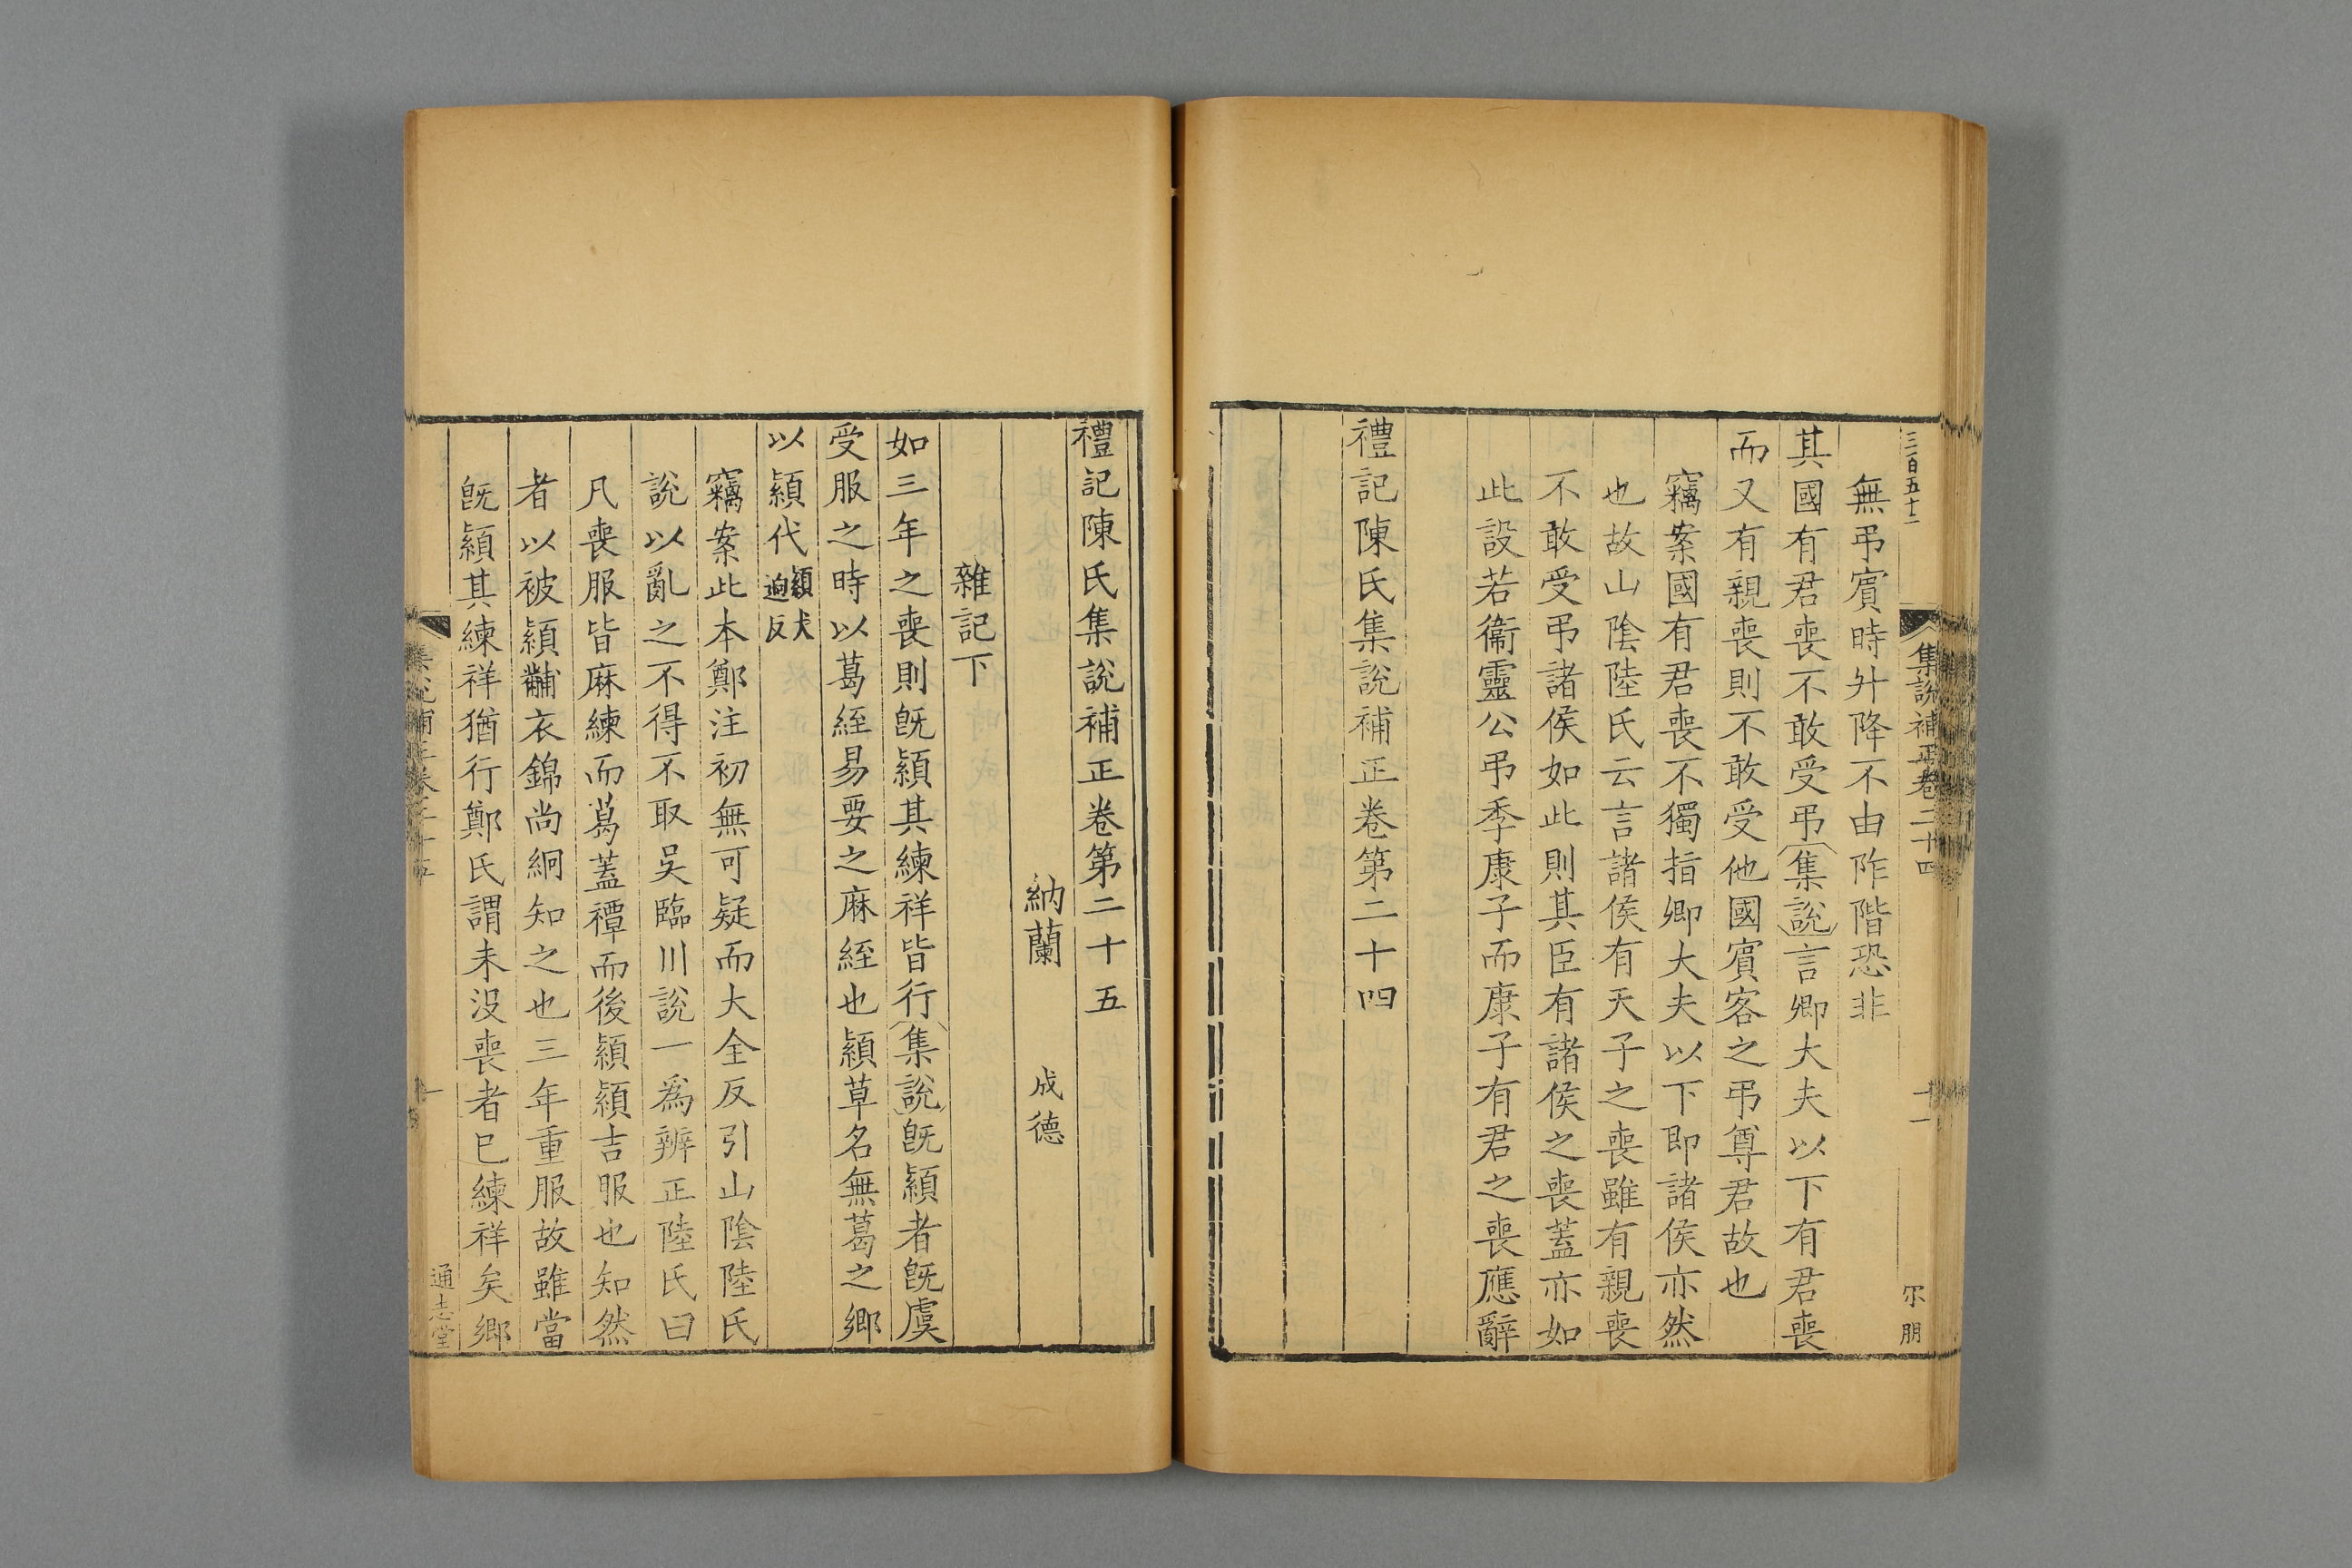 三百五十一
集說補正卷二十四
十一
尔朋
無弔賔時升降不由阼階恐非
其國有君喪不敢受弔集說言卿大夫以下有君喪
而又有親喪則不敢受他國賔客之弔尊君故也
竊案國有君喪不獨指卿大夫以下即諸侯亦然
也故山陰陸氏云言諸侯有天子之喪雖有親喪
不敢受弔諸侯如此則其臣有諸侯之喪蓋亦如
此設若衞靈公弔季康子而康子有君之喪應辭
禮記陳氏集說補正卷第二十四
禮記陳氏集說補正卷第二十五
納蘭 成德
雜記下
如三年之喪則旣熲其練祥皆行集說旣熲者旣虞
受服之時以葛絰易要之麻絰也熲草名無葛之鄉
以熲代熲犬迥反
竊案此本鄭注初無可疑而大全反引山陰陸氏
說以亂之不得不取吳臨川說一爲辨正陸氏曰
凡喪服皆麻練而葛蓋禫而後熲熲吉服也知然
者以被熲黼衣錦尚絅知之也三年重服故雖當
旣熲其練祥猶行鄭氏謂未沒喪者已練祥矣鄉
集說補正卷二十五
一
通志堂